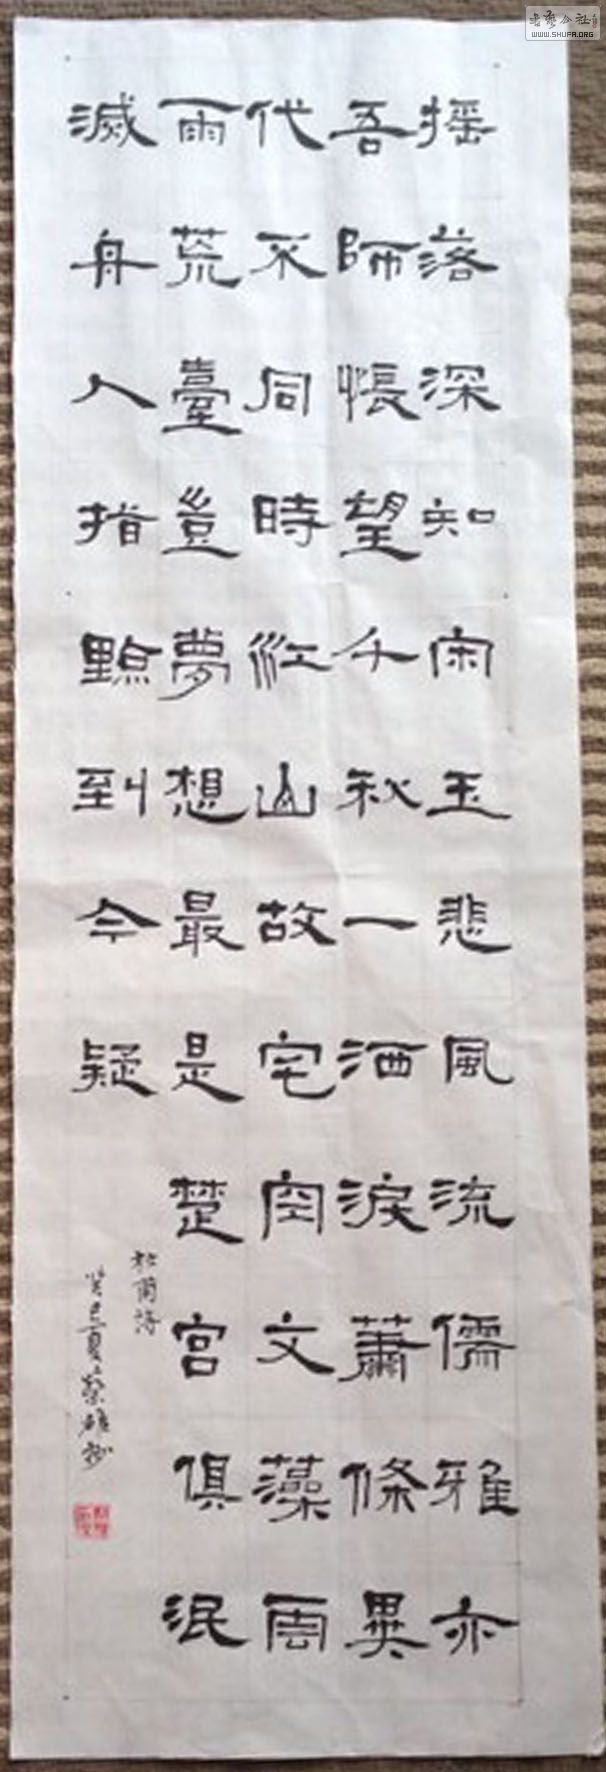 搖落深知宋玉悲風流儒雅亦
吾師悵望千秋一洒淚蕭條異
代不同時江山故宅空文藻雲
雨荒臺豈夢想最是楚宮俱泯
滅舟人指點到今疑
杜甫詩
癸巳夏蔡
書藝公社
WWW.SHUFA.ORG